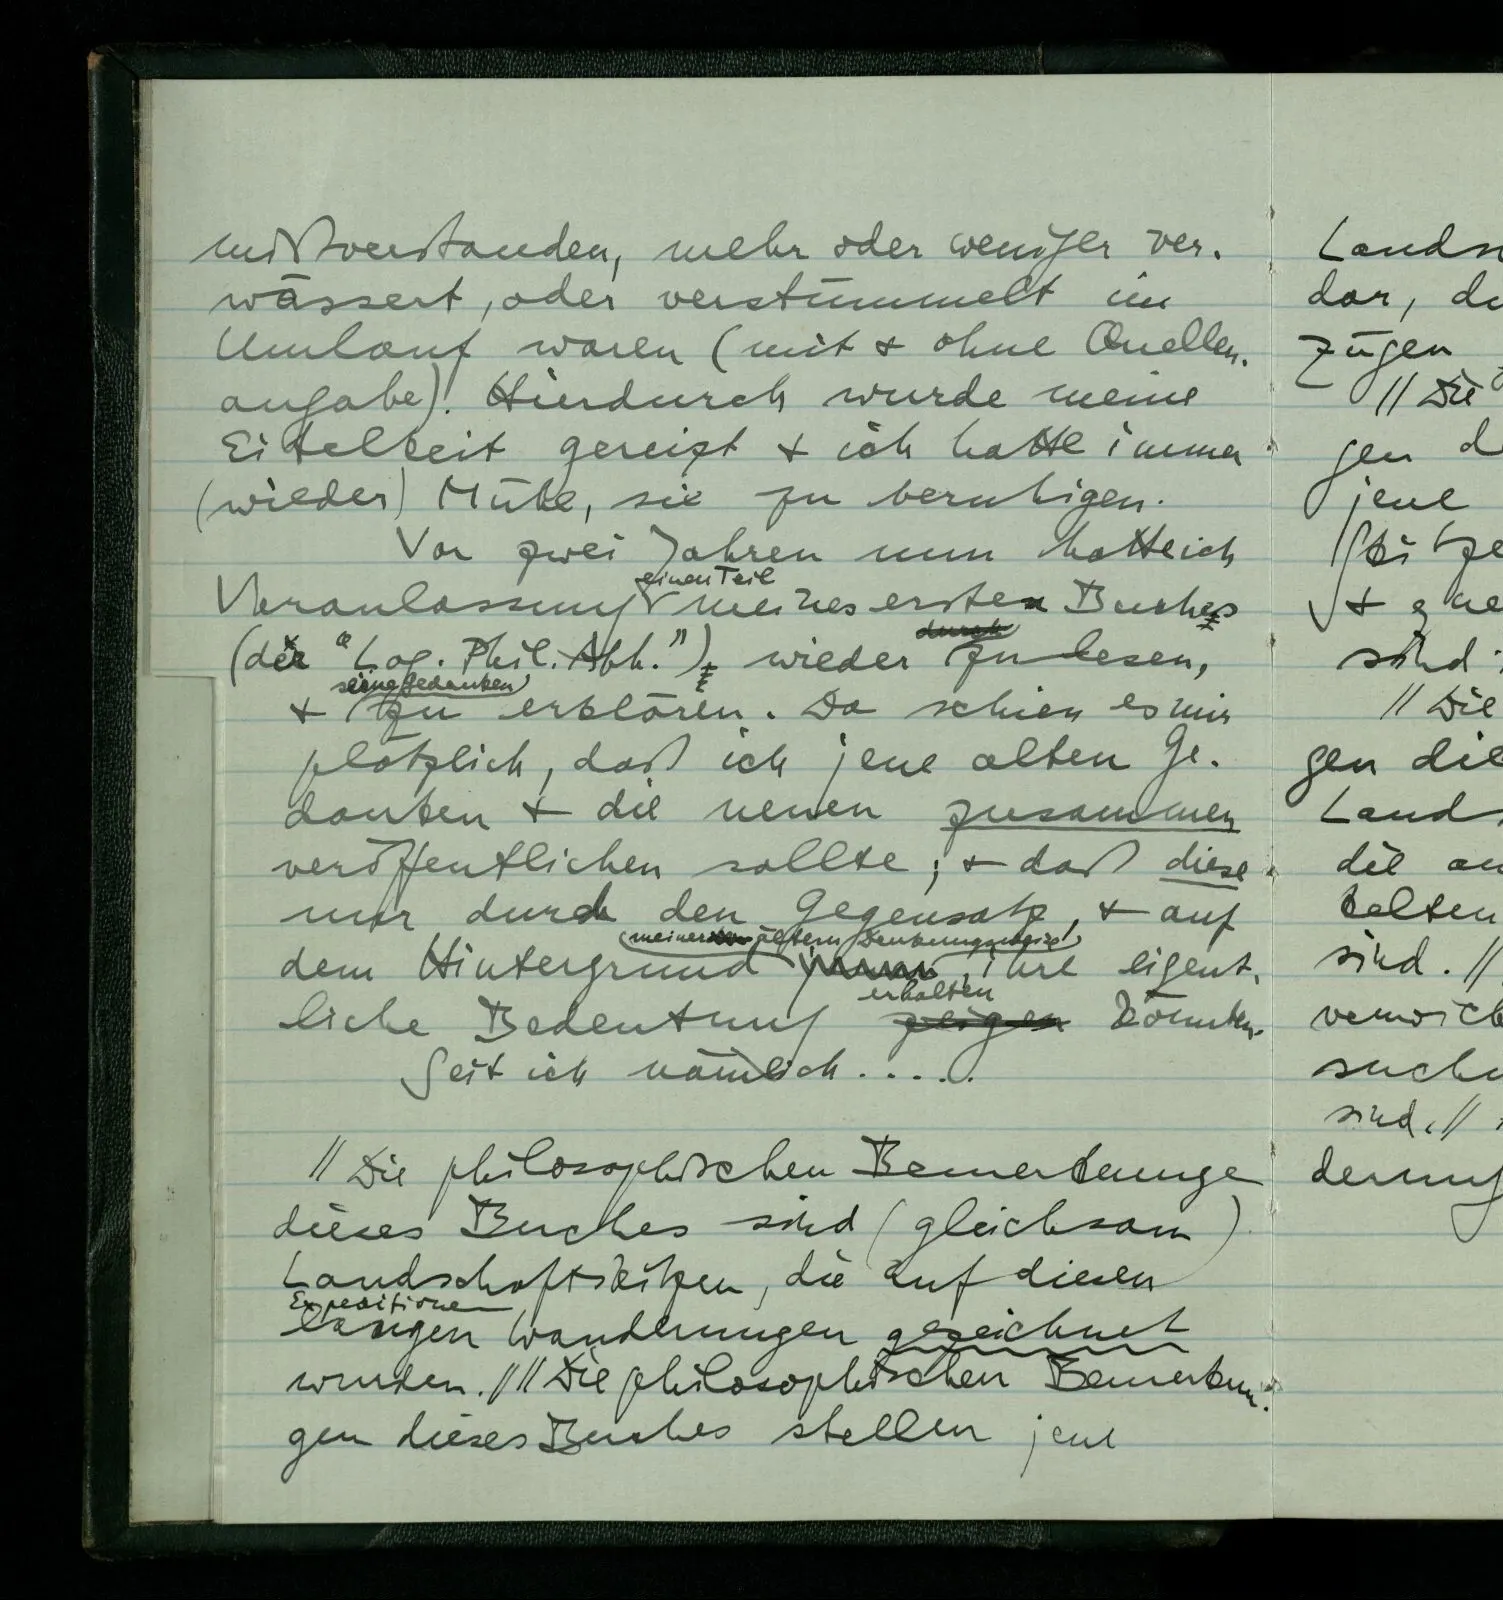 mißverstanden, mehr oder weniger ver-
wässert, oder verstümmelt im
Umlauf waren (mit & ohne Quellen-
angabe). Hierdurch wurde meine
Eitelkeit gereizt & ich hatte immer
(wieder) Mühe, sie zu beruhigen.
Vor zwei Jahren nun hatte ich
einen Teil
Veranlassung meines ersten Buches
durch
(der "Log. Phil. Abh."), wieder zu lesen,
seine Gedanken
& zu erklären. Da schien es mir
plötzlich, daß ich jene alten Ge-
danken & die neuen zusammen
veröffentlichen sollte; & daß diese
nur durch den Gegensatz, & auf
meiner ältern Denkungsweise
dem Hintergrund ihre eigent-
erhalten
liche Bedeutung zeigen könnten.
Seit ich nämlich.....
// Die philosophischen Bemerkunge
dieses Buches sind (gleichsam)
Landschaftskizzen, die auf diesen
Expeditionen
langen Wanderungen gezeichnet
wurden. // // Die philosophischen Bemerkun-
gen dieses Buches stellen jene
Lands
dar, d
zügen
// Die
gen d
jene
&
sind
// Die
gen die
Lands
die an
selten
sind. //
verwick
suche
sind. //
derung